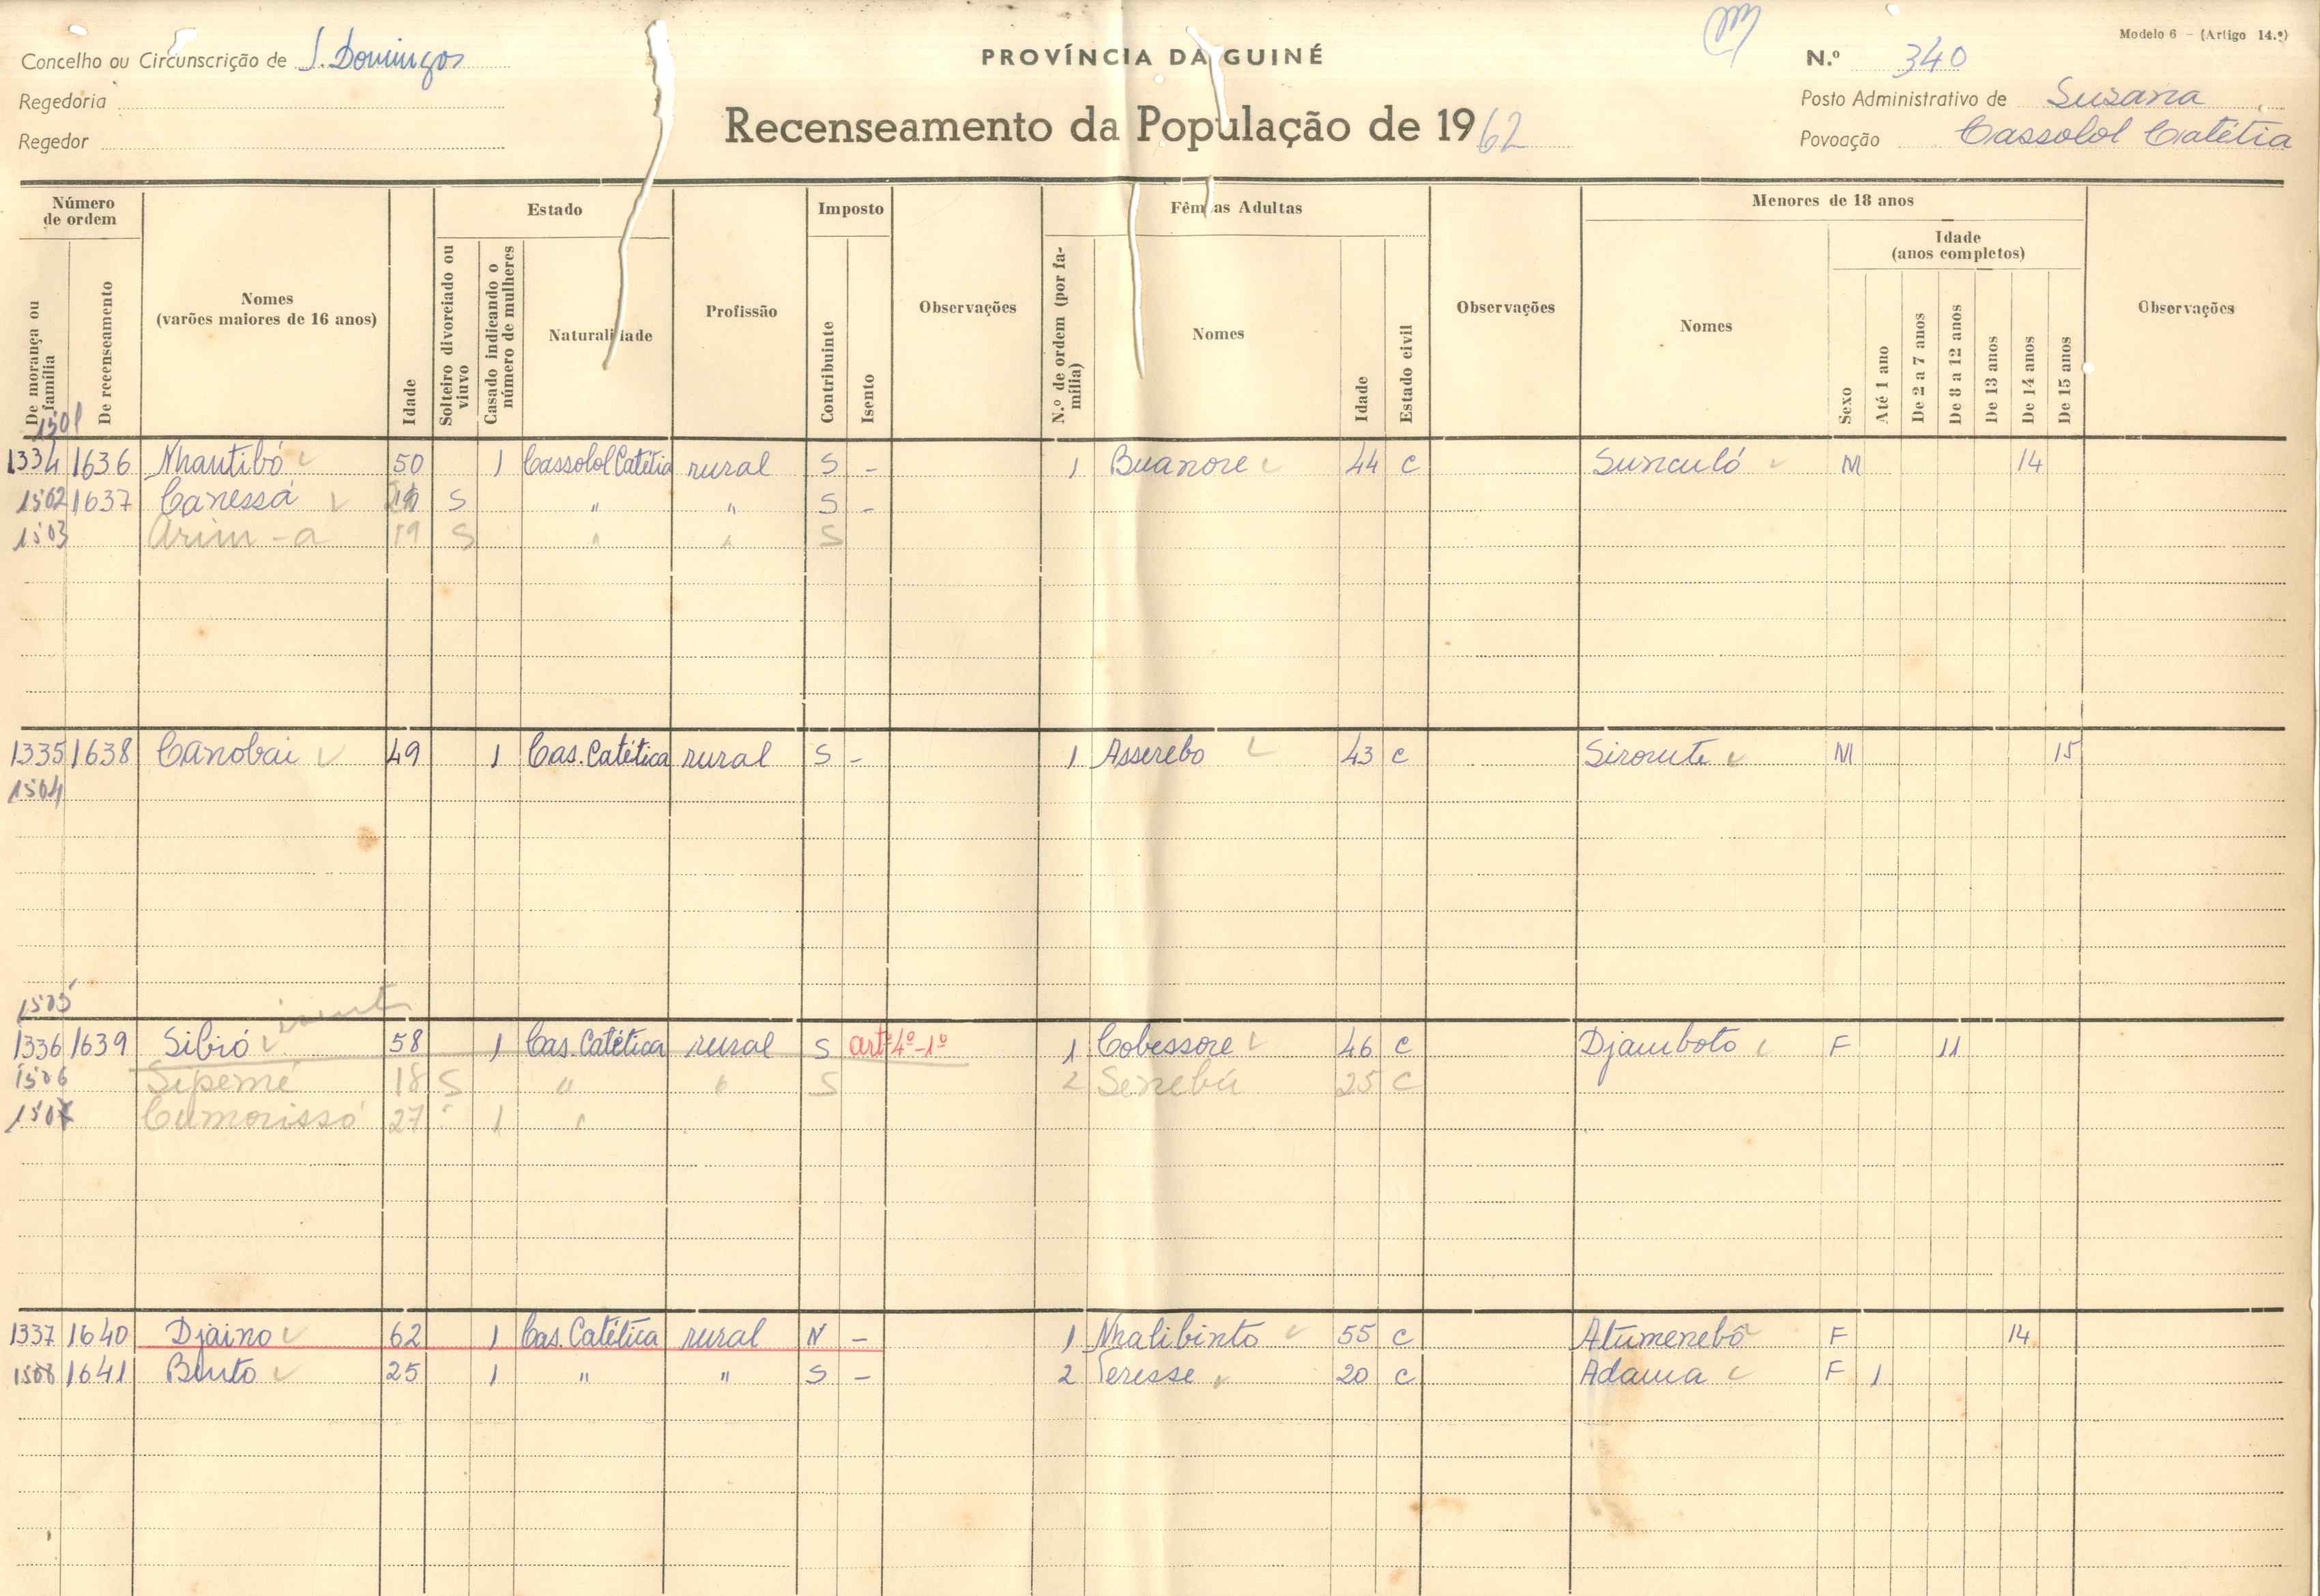 Modelo 6 – (Artigo 14.º)
Concelho ou Circunscrição de S. Domingos PROVÍNCIA DA GUINÉ N.º 340
Regedoria Posto Administrativo de Susana
Regedor Recenseamento da População de 1962 Povoação Cassolol Catétia
Número de ordem Estado Imposto Fêmeas Adultas Menores de 18 anos
Idade (anos completos)
De morança ou família De recenseamento Nomes (varões maiores de 16 anos) Idade Solteiro divorciado ou viuvo Casado indicando o número de mulheres Naturalidade Profissão Contribuinte Isento Observações N.º de ordem (por família) Nomes Idade Estado civil Observações Nomes Sexo Até 1 ano De 2 a 7 anos De 8 a 12 anos De 13 anos De 14 anos De 15 anos Observações
1501
1334 1636 Nhantibó 50 1 Cassolol Catétia rural S - 1 Buanore 44 C Sunculó M 14
1502 1637 Canessá S " " S -
1503 Arim-a 19 S " " S
1335 1638 Canobai 49 1 Cas. Catética rural S - 1 Asserebo 43 C Sirorute M 15
1504
1505 isent
1336 1639 Sibió 58 1 Cas. Catética rural S artº 4º-1º 1 Cobessore 46 C Djamboto F 11
1506 Sipemé 18 S " " S 2 Senebú 25 C
1507 Cumorissó 27 1 "
1337 1640 Djaino 62 1 Cas. Catética rural N - 1 Nhalibinto 55 C Atumenebó F 14
1508 1641 Binto 25 1 " " S - 2 Teresse 20 C Adama F 1